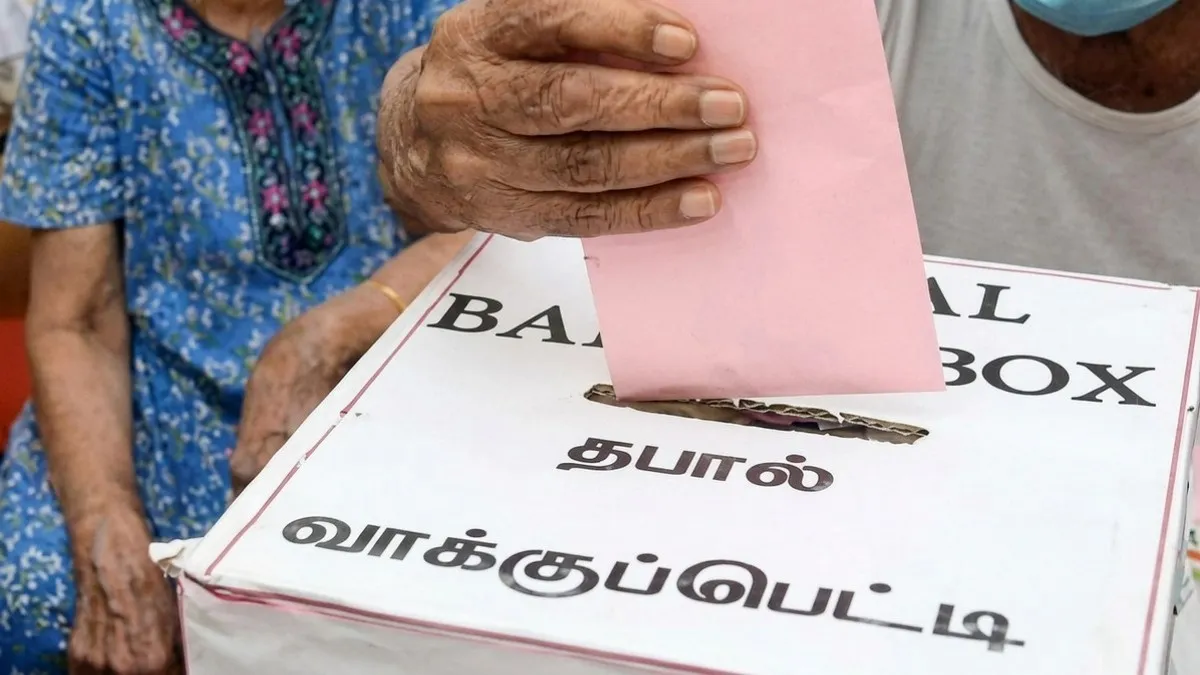 AL
BOX
தபால்
வாக்குப்பெட்டி